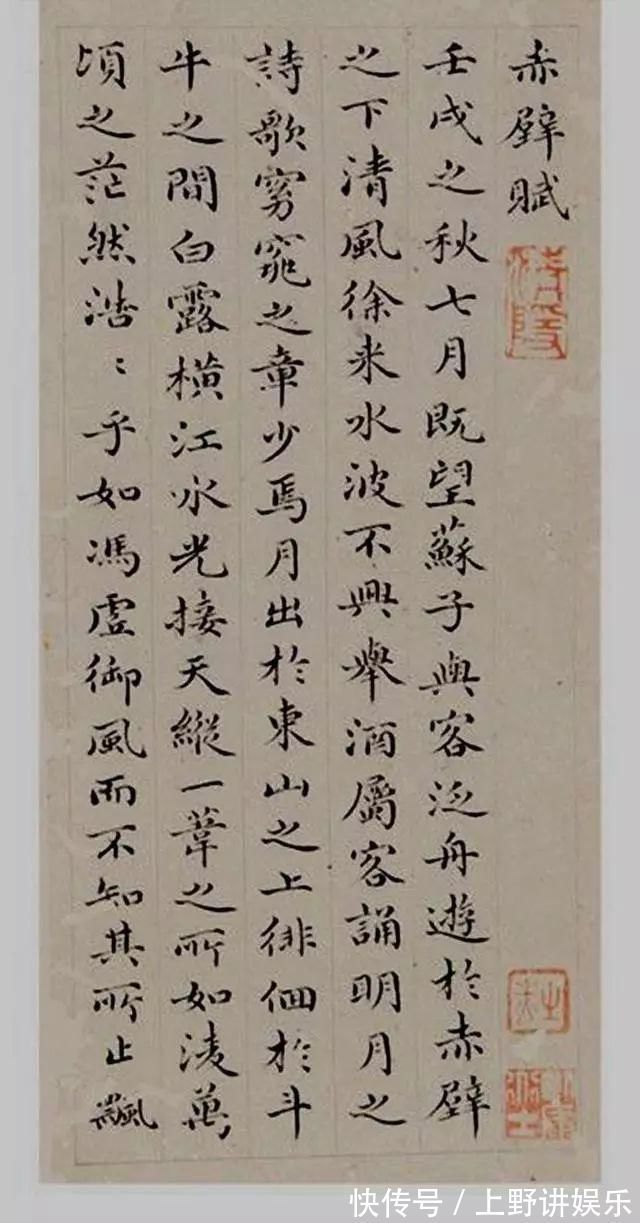 赤壁賦
壬戌之秋七月既望蘇子與客泛舟遊於赤壁
之下清風徐来水波不興舉酒屬客誦明月之
詩歌窈窕之章少焉月出於東山之上徘佪於斗
牛之間白露橫江水光接天縱一葦之所如淩萬
頃之茫然浩〻乎如馮虛御風而不知其所止飄
快传号 / 上野讲娱乐